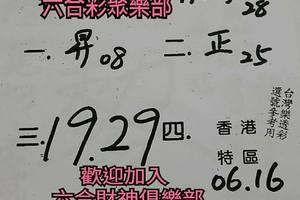 六合彩聚樂部
28
一.昇08 二.正25
三.19.29 四.
台灣樂透彩
選號參考用
香港
特區
06.16
歡迎加入
六合財神俱樂部